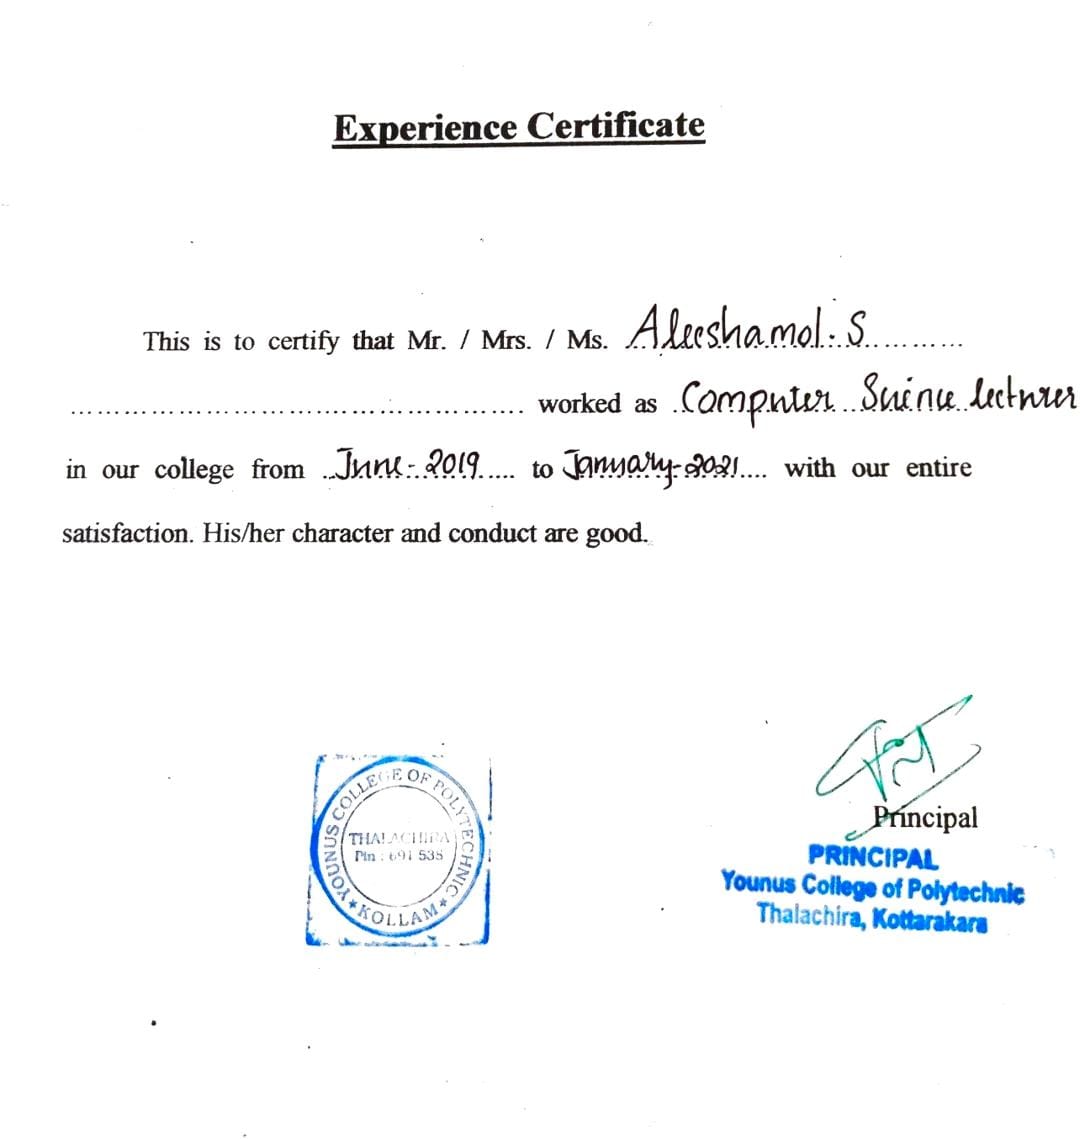 Experience Certificate
This is to certify that Mr. / Mrs. / Ms. Aleeshamol. S...........
..................................................... worked as Computer Science lecturer
in our college from ..June-2019..... to January-2021.... with our entire
satisfaction. His/her character and conduct are good.
YOUNUS COLLEGE OF POLYTECHNIC
THALACHIRA
Pin : 691 535
★ KOLLAM ★
Principal
PRINCIPAL
Younus College of Polytechnic
Thalachira, Kottarakara